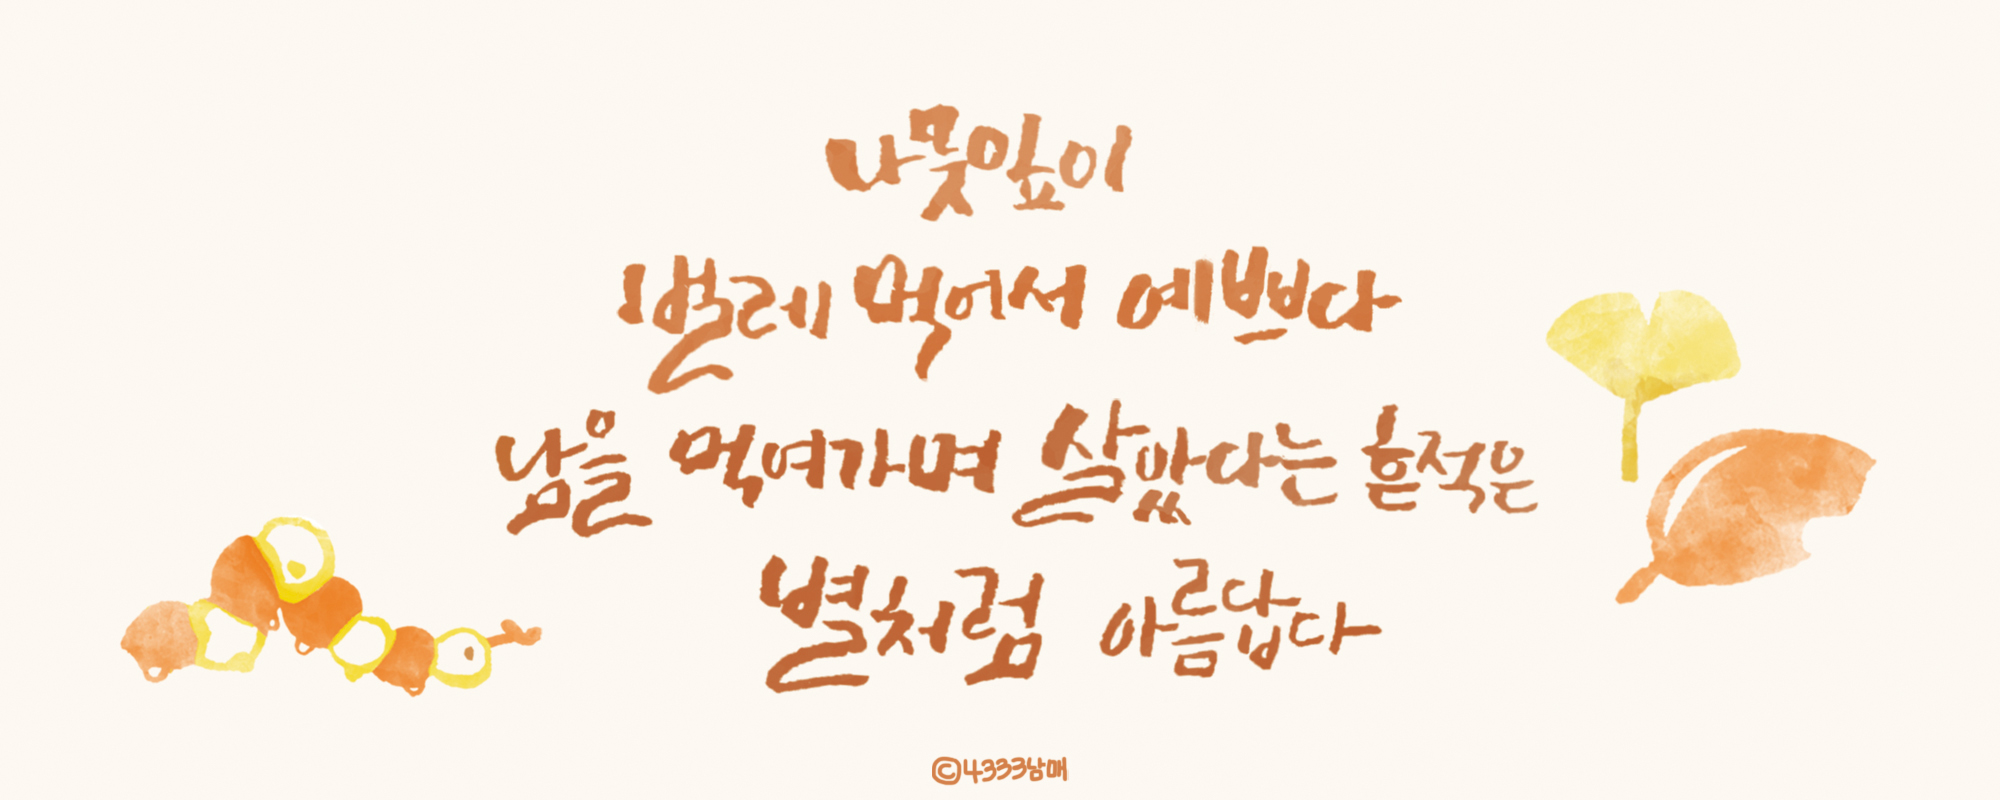 나뭇잎이
벌레 먹어서 예쁘다
남을 먹여가며 살았다는 흔적은
별처럼 아름답다
©4333남매